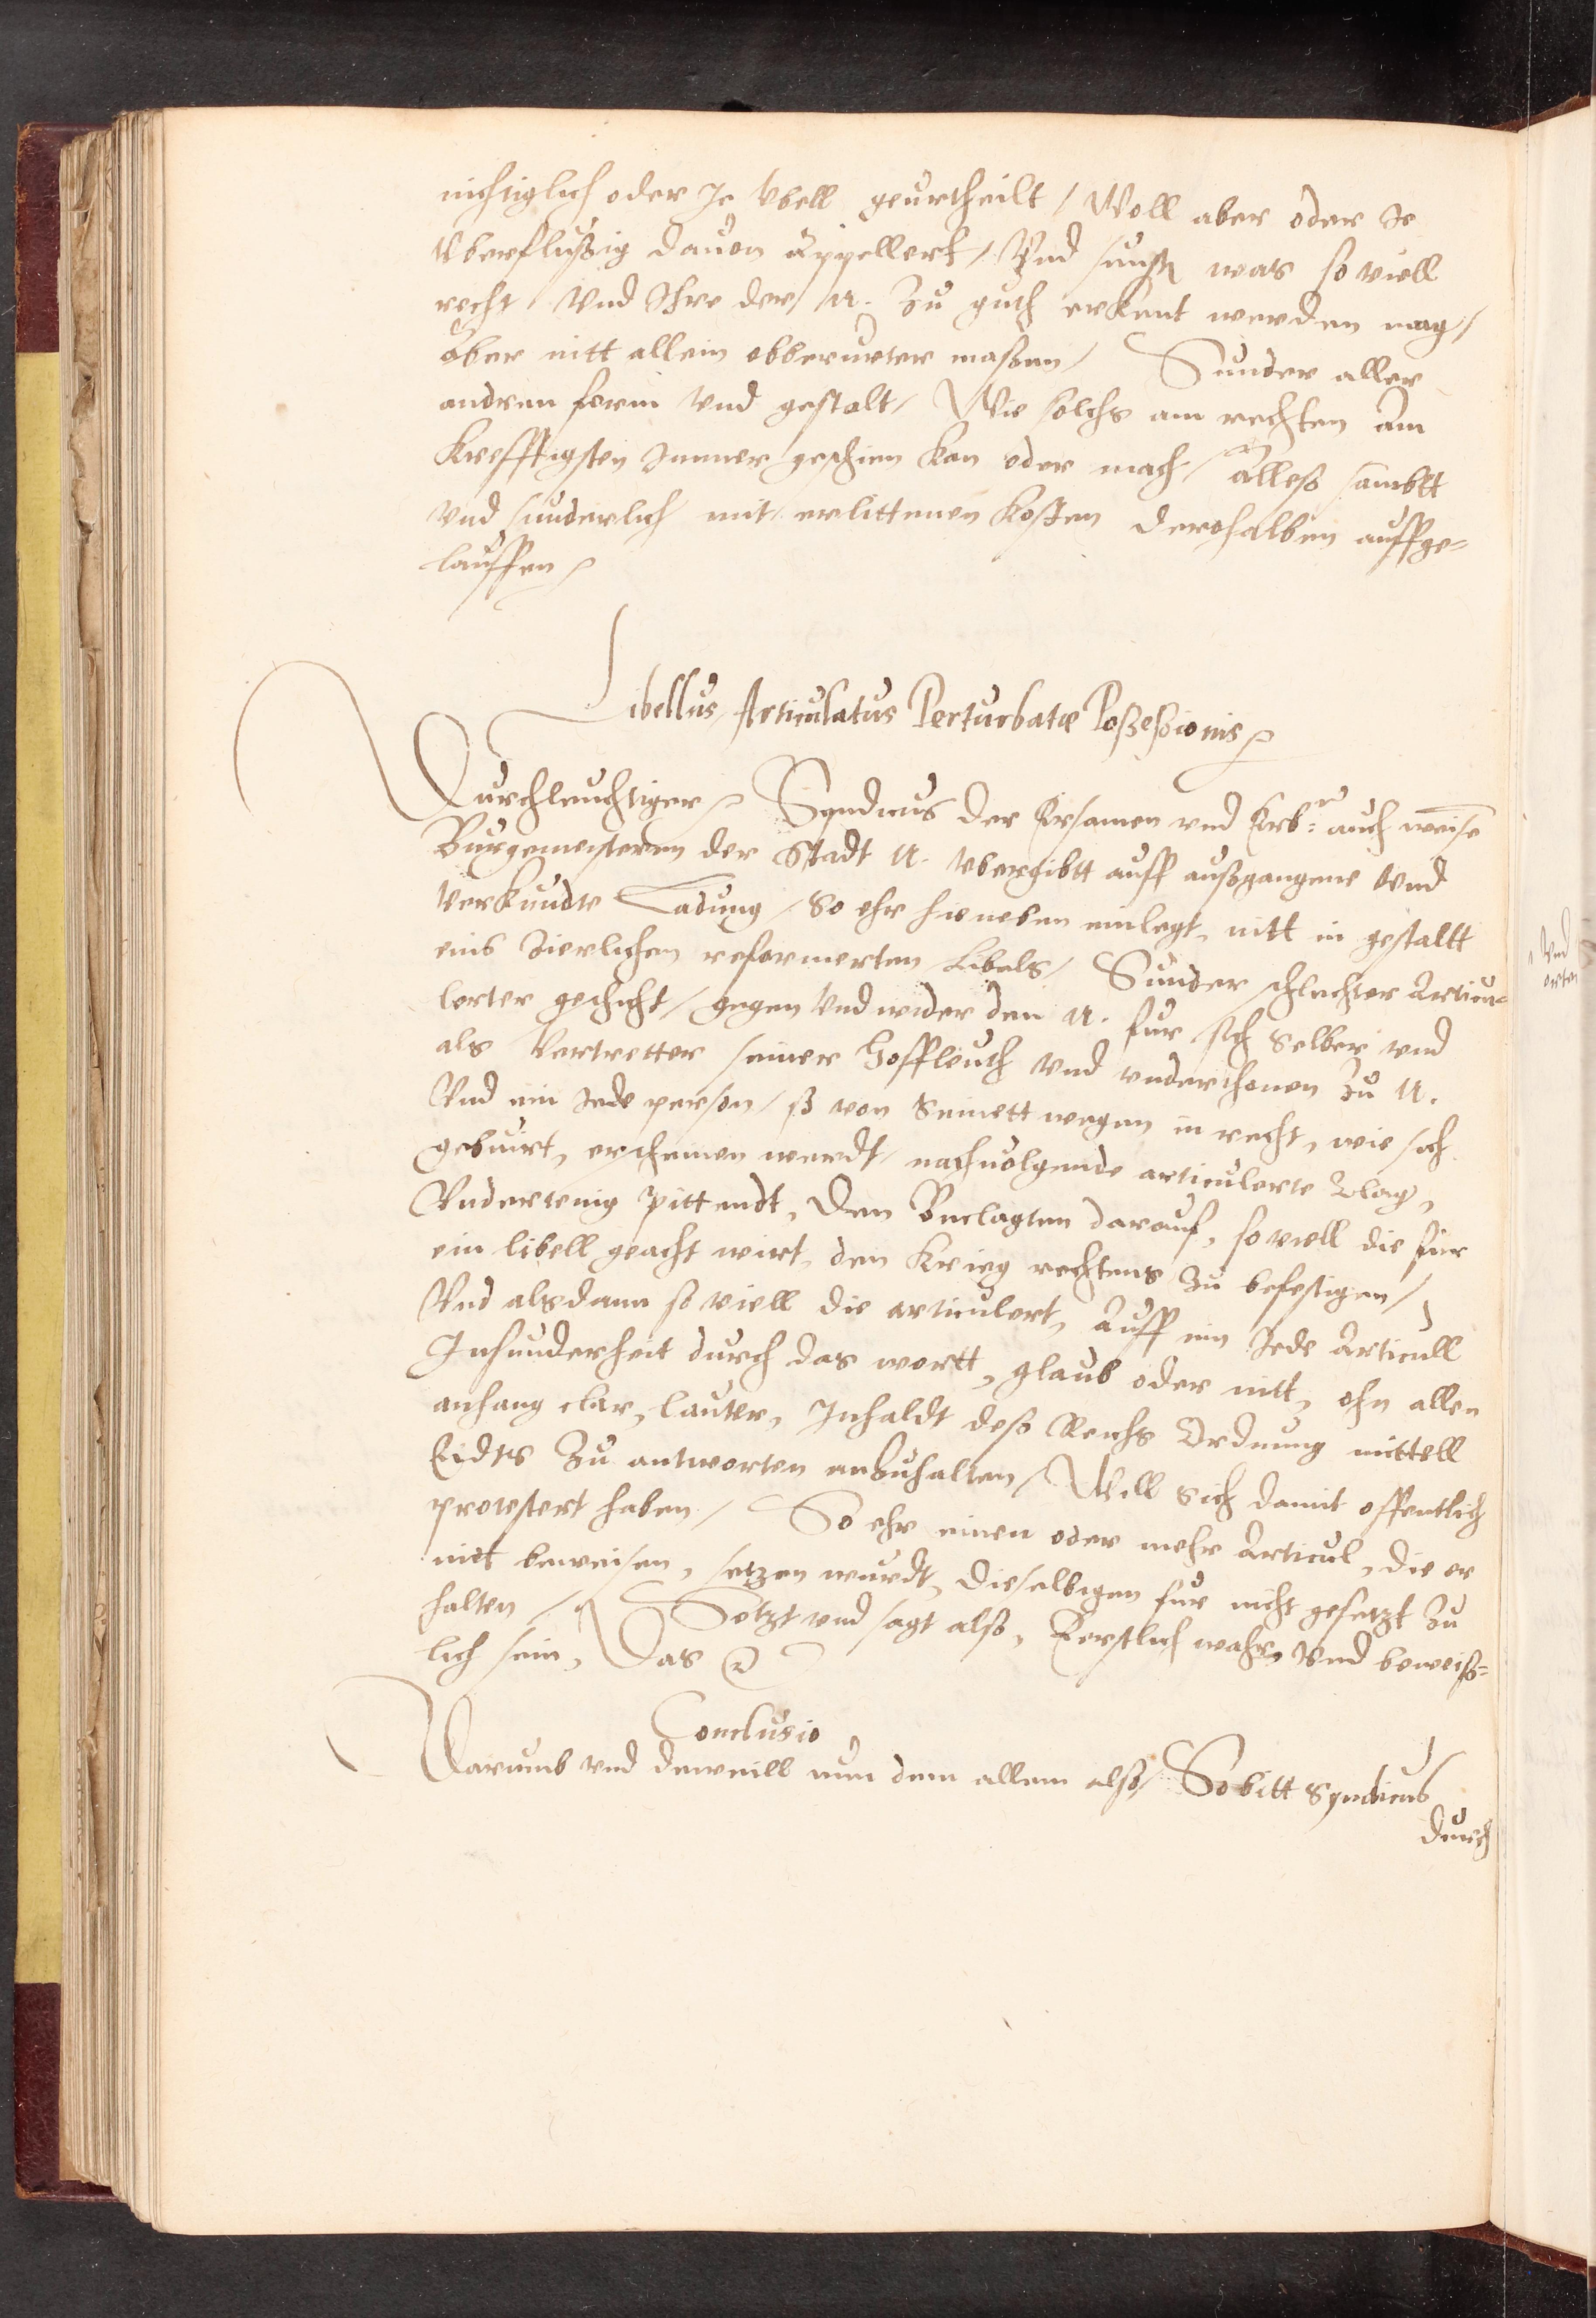 nichtiglich oder Je vbell geurtheilt / Woll aber oder Je
Vberflußig dauon Appellert / Vnd sunst was so viell
recht / Vnd Ihre der / N. Zu guth erkent werden mag /
Aber nitt allein obberurter maßenn / Sunder aller
andren form vnd gestalt / Wie solchs am rechten Am
Krefftigsten Jmmer geschien kan oder mach / Alleß sambtt
vnd sunderlich mit erlittenen Kosten derohalben auffge=
lauffen
Libellus Articulatus Perturbatæ Poßeßionis
Durchleuchtiger Syndicus der Ersamen vnd Erb:n auch weise
Burgemeisteren der Stadt N. vbergibtt auff außgangene Vnd
Verkundte Ladung / So ehr hieneben einlegt, nitt in gestaltt
eins Zierlichen reformerten Libels / Sunder schlechter Articu=
lerter geschicht / gegen Vnd wider den N. fur sich selber vnd
als Vertretter seiner Hoffleuth vnd vnderthonen Zu N.
Vnd ein Jede person / ß von Seinett wegen in recht, wie sich
gebuirt, erscheinen werdt / nachuolgende articulerte Clag,
Vndertenig Pittendt, Den Beclagten darauf, so viell die fur
ein libell geacht wirt, den Krieg rechtens Zu befestigen /
Vnd alsdann so viell die articulert, Auff ein Jede Articull
Jnsunderheit durch das wortt, glaub oder nitt, ohn allen
anhang clar, lauter, Jnhaldt deß Reichs Ordnung mittell
Eidts Zu antworten anzuhalten / Will Sich damit offentlich
protestert haben / So ehr einen oder mehr Articul, die er
nitt beweisen, setzen wurdt, Dieselbigen fur nicht gesetzt Zu
halten / Setzt vnd sagt also, Eerstlich wahr, Vnd beweiß=
lich sein, Das
Conclusio
Darumb vnd dieweill nun dem allem also / So bitt Syndicus
durch
Vnd
orten